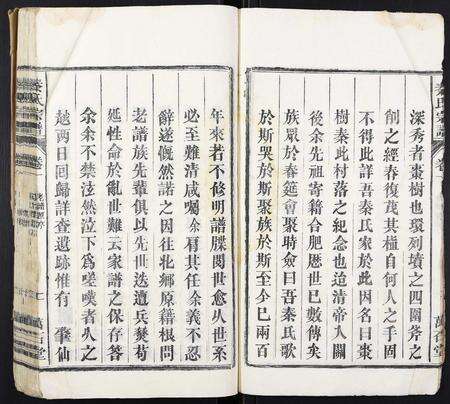 深秀者棗樹也環列墳之四圍斧之
削之經春復茂其種自何人之手固
不得此詳吾秦氏家於此因名曰棗
樹秦此村落之紀念也迨清帝入關
後余先祖寄籍合肥歷世已數傳矣
族眾於春筵會聚時僉曰吾秦氏歌
於斯哭於斯聚族於斯至今已兩百
年來若不修明譜牒閱世愈久世系
必至難清咸囑余肩其任余義不忍
辭遂慨然諾之因往北鄉原籍根問
老譜族先輩俱以先世迭遭兵燹苟
延性命於亂世難云家譜之保存答
余余不禁泫然泣下為嗟嘆者久之
越兩日回歸詳查遺跡惟有 肇仙
秦氏宗譜